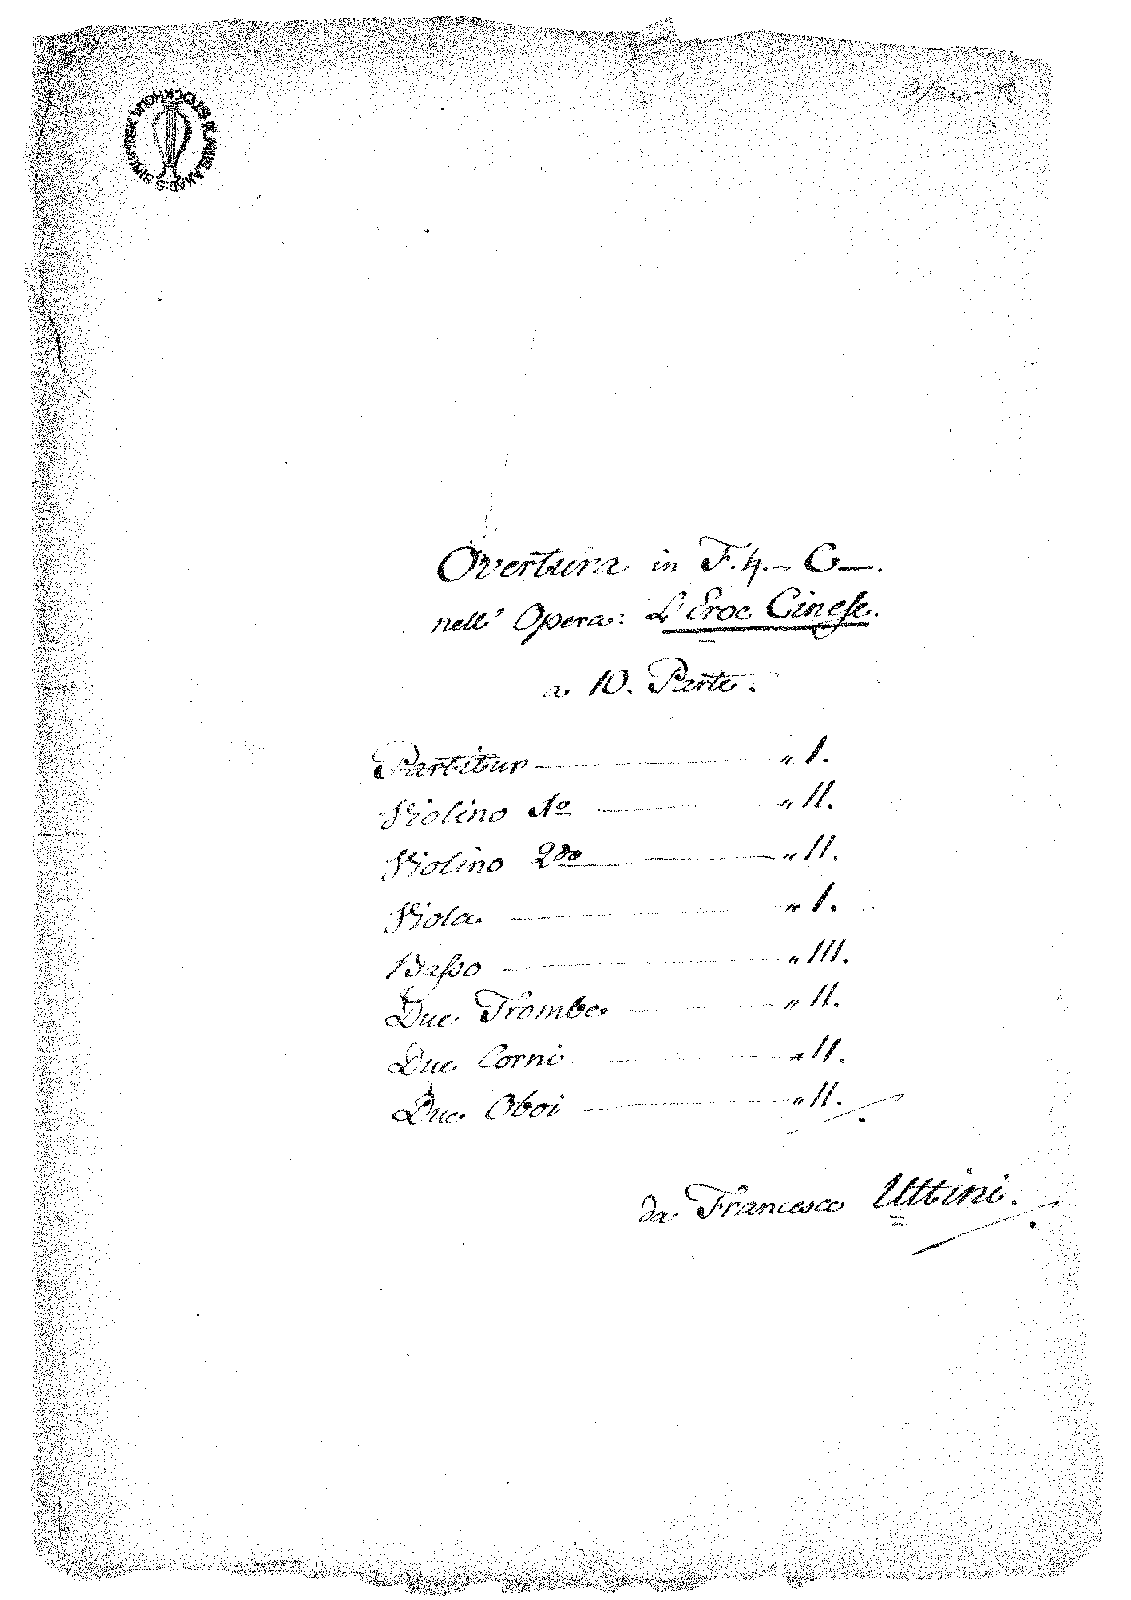 Overtura in F. ♮. – C –.
nell' Opera: L'Eroe Cinese.
a 10. Parte.
Partitur — " 1.
Violino 1o — " 11.
Violino 2do — " 11.
Viola — " 1.
Basso — " 111.
Due Trombe — " 11.
Due Corni — " 11.
Due Oboi — " 11.
da Francesco Uttini.